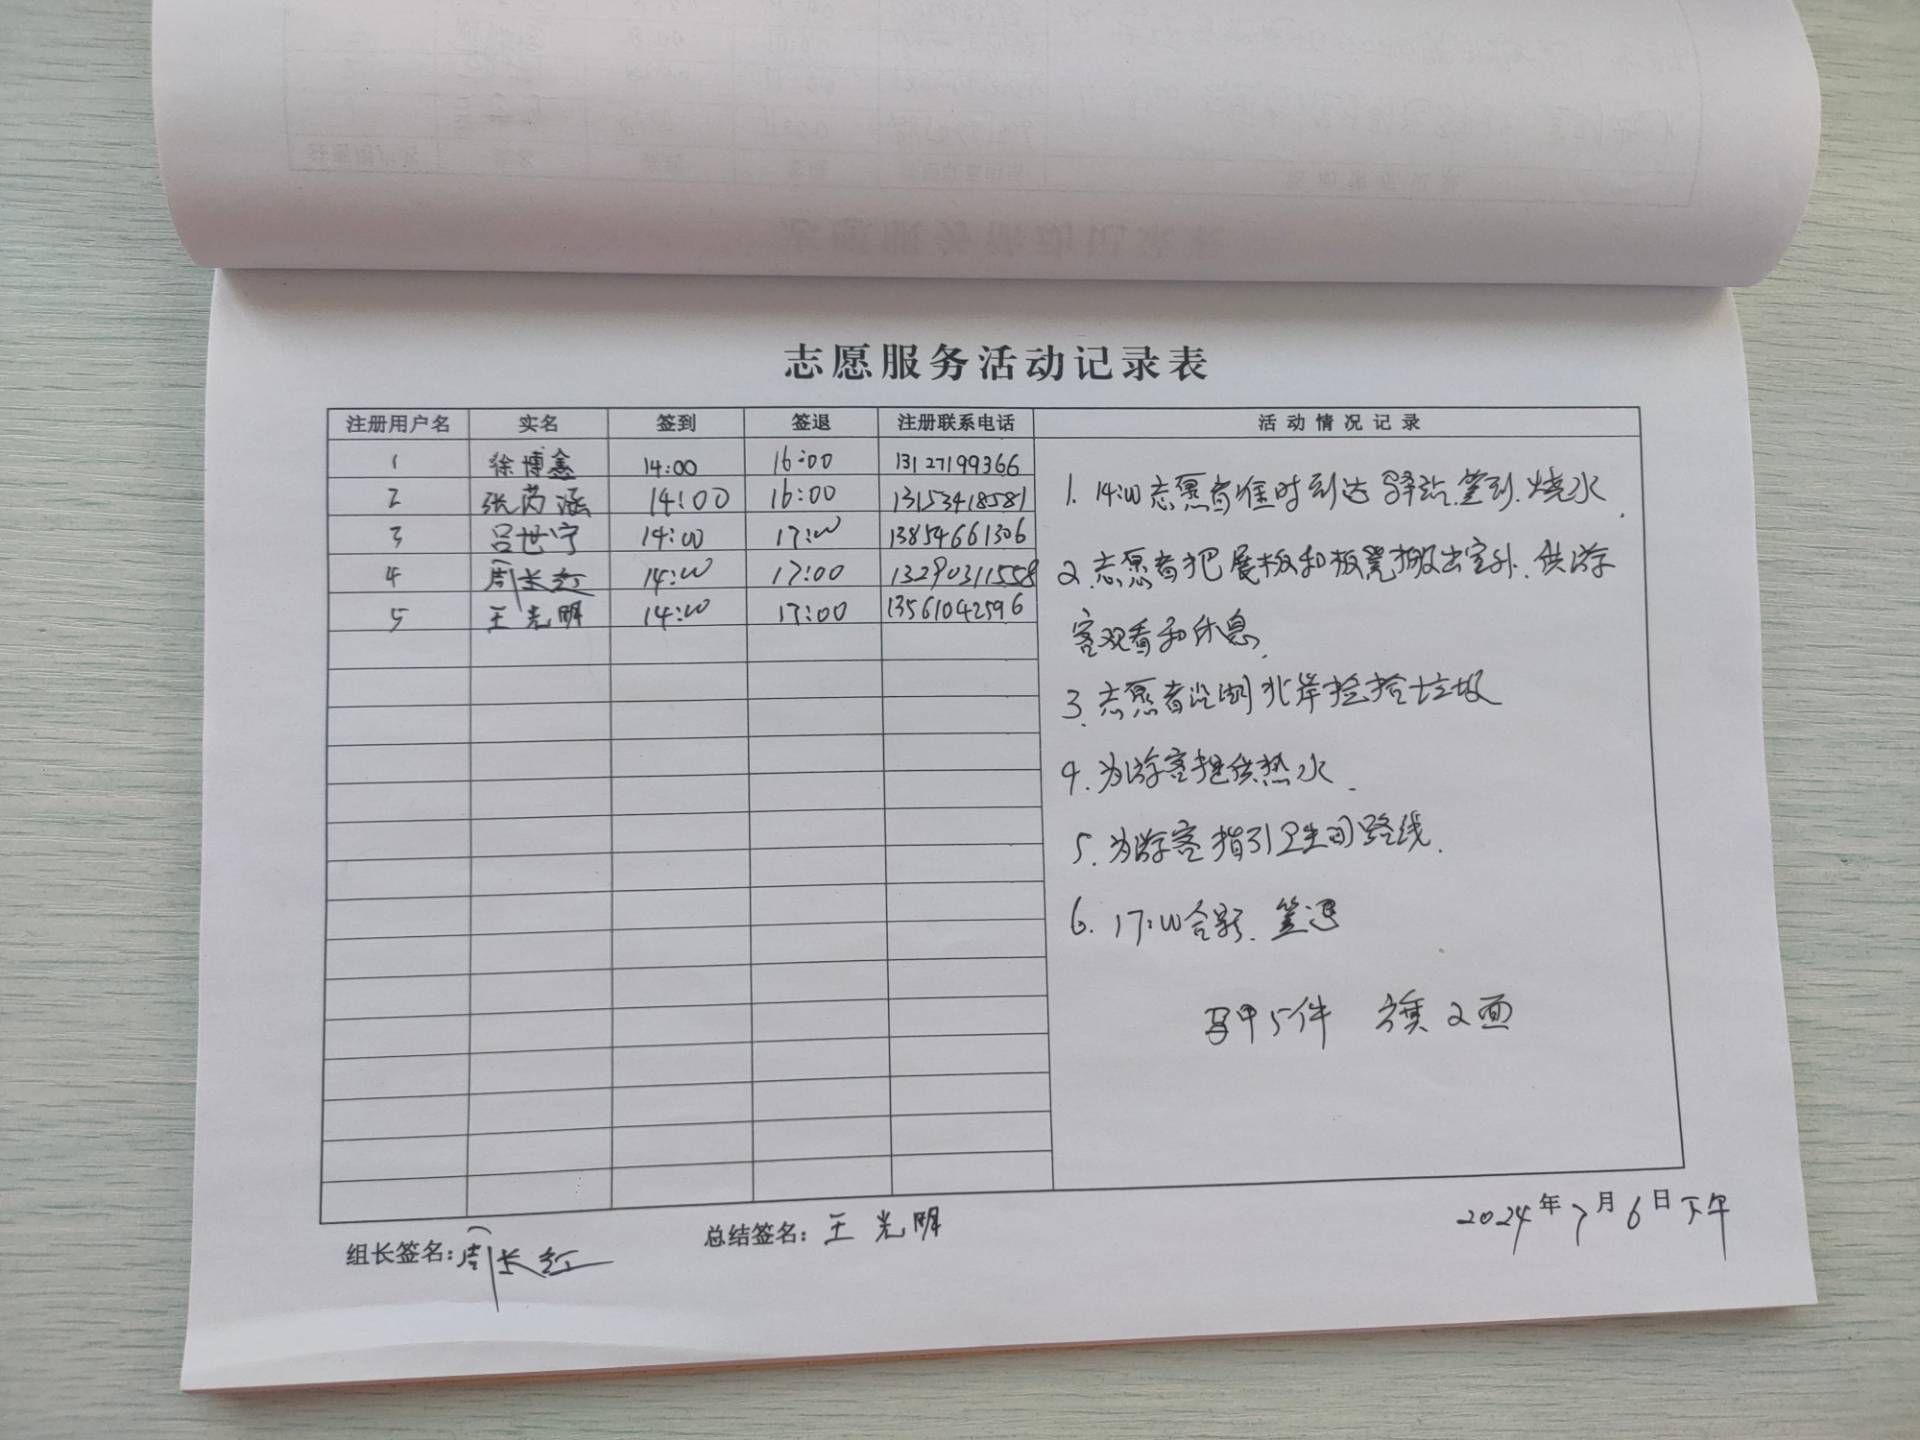 志愿服务活动记录表
注册用户名 实名 签到 签退 注册联系电话 活动情况记录
1 徐博鑫 14:00 16:00 13127199366
2 张芮涵 14:00 16:00 13153418581
3 吕世宁 14:00 17:00 13854661306
4 周长红 14:00 17:00 13290311558
5 王光明 14:00 17:00 13561042596
1. 14:00志愿者准时到达驿站.签到.烧水.
2.志愿者把展板和板凳搬出室外.供游
客观看和休息.
3.志愿者沿湖北岸捡拾垃圾
4.为游客提供热水.
5.为游客指引卫生间路线.
6. 17:00合影.签退
马甲5件 旗2面
组长签名:周长红 总结签名:王光明 2024年7月6日下午